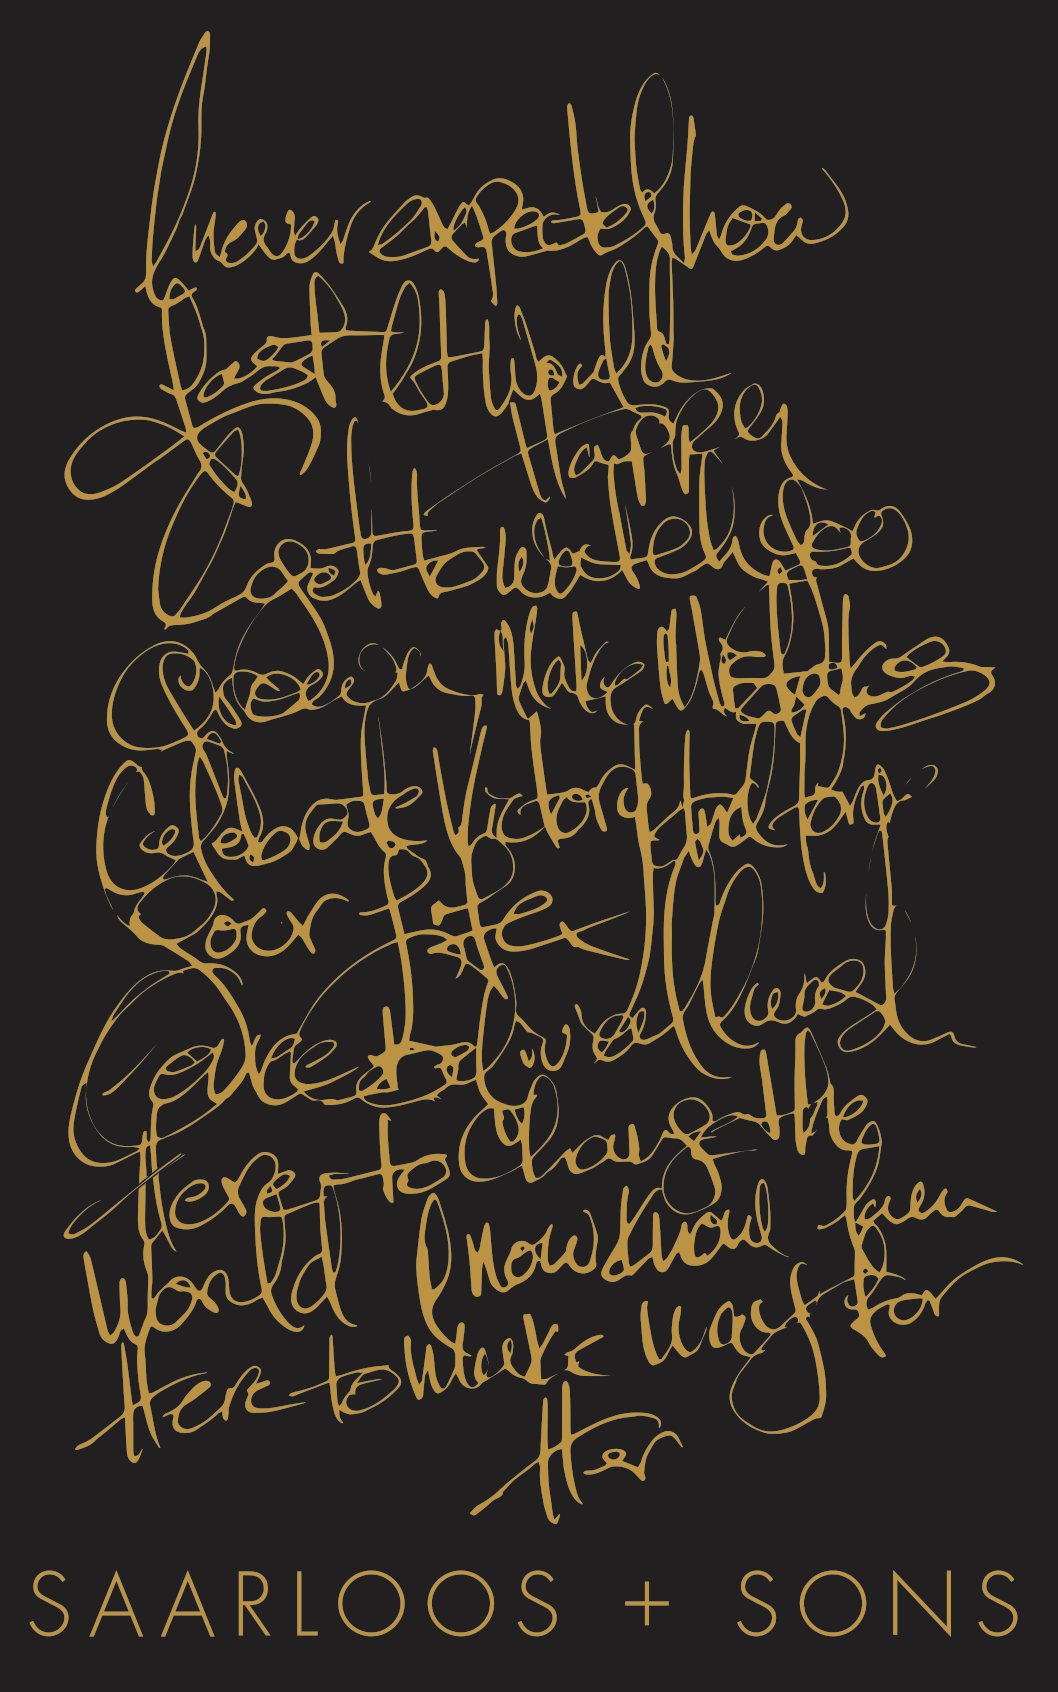 I never expected how
fast It Would
Happen
I get to watch you
Grow up Make Mistakes
Celebrate Victory And forge
your Life
I once believed I was
Here to Change the
World I now Know I am
Here to Make way for
Her
SAARLOOS + SONS